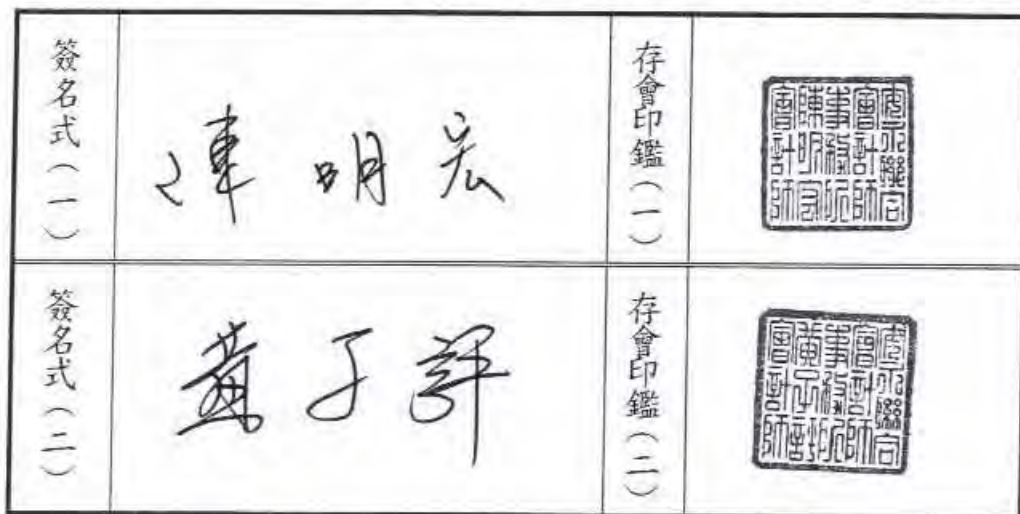 簽名式（一）
陳明宏
存會印鑑（一）
安永聯合
會計師
事務所
陳明宏
會計師
簽名式（二）
黃子評
存會印鑑（二）
安永聯合
會計師
事務所
黃子評
會計師